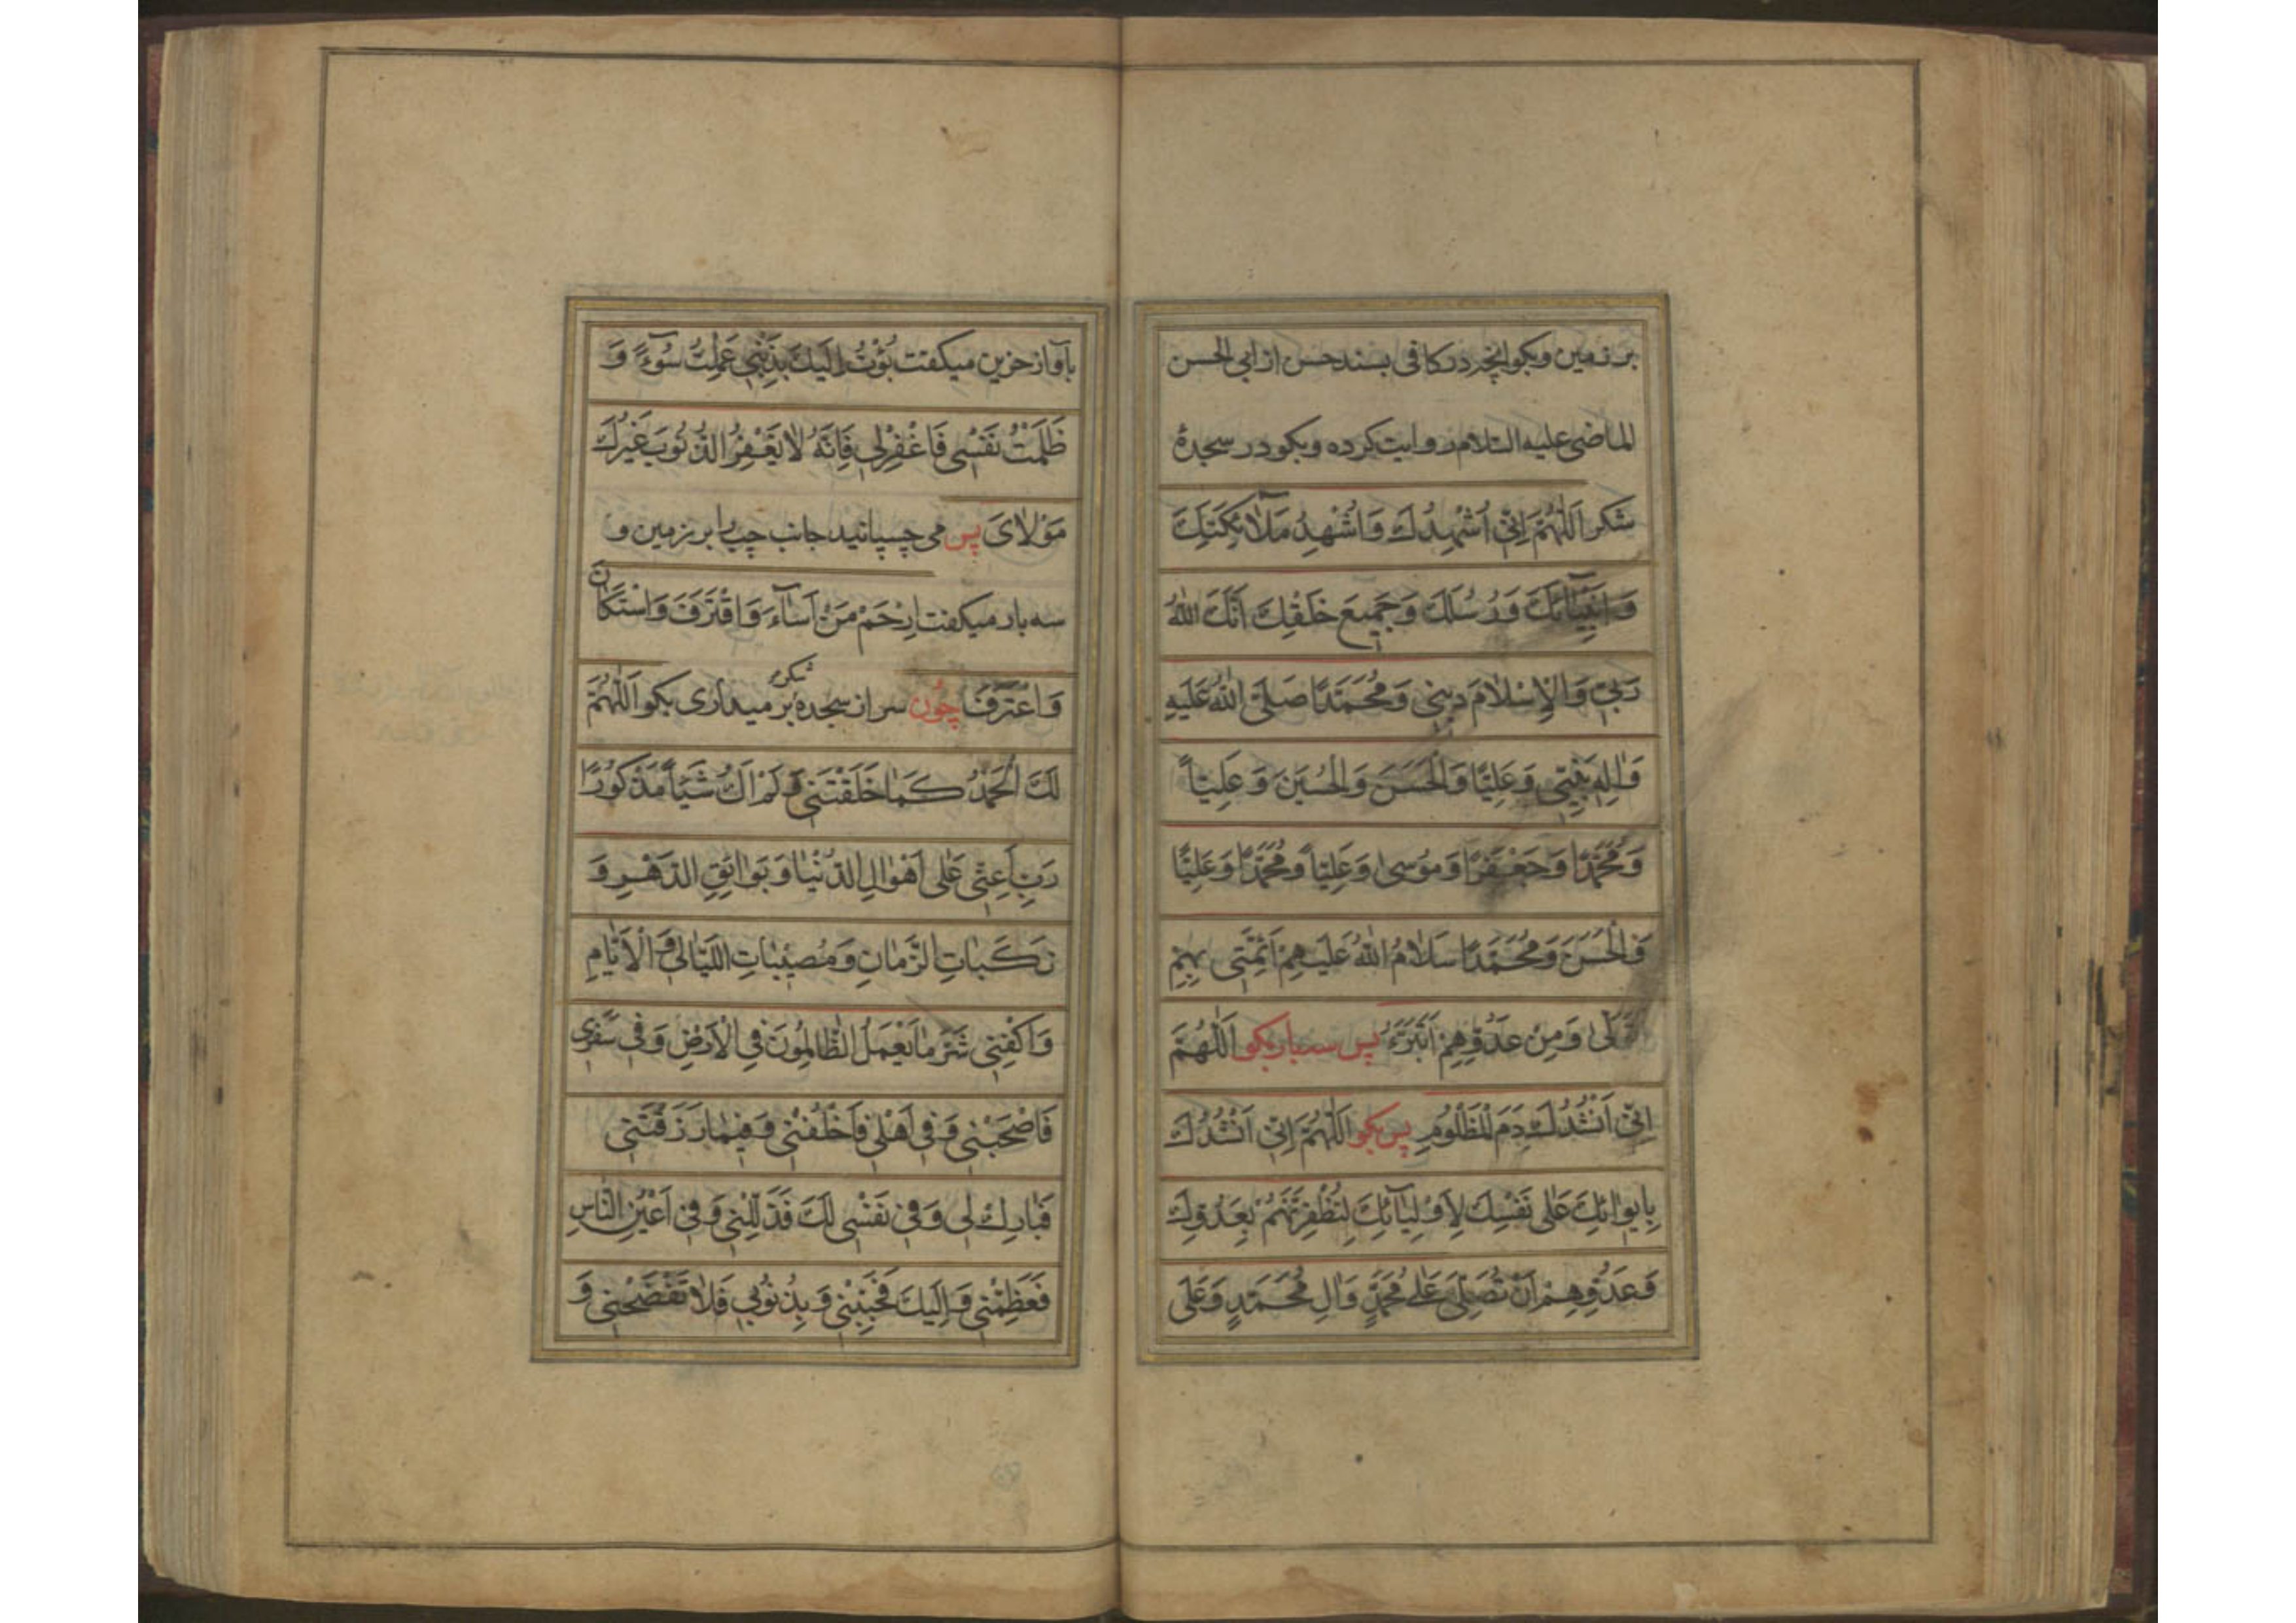 بر زمین و بکو انچه در کافی بسند حسن از ابی الحسن
الماضی علیه السلام روایت کرده و بکو در سجدهٔ
شکر اَللّٰهُمَّ اِنّی اُشْهِدُكَ وَاُشْهِدُ مَلآئِكَتَكَ
وَاَنْبِیٰٓائَكَ وَرُسُلَكَ وَجَمیعَ خَلْقِكَ اَنَّكَ اللّٰهُ
رَبّی وَالْاِسْلٰامَ دینی وَمُحَمَّدًا صَلَّی اللّٰهُ عَلَیْهِ
وَاٰلِهِ نَبِیّی وَعَلِیًّا وَالْحَسَنَ وَالْحُسَیْنَ وَعَلِیّاً
وَمُحَمَّدًا وَجَعْفَرًا وَمُوسیٰ وَعَلِیّاً وَمُحَمَّدًا وَعَلِیًّا
وَالْحَسَنَ وَمُحَمَّدًا سَلٰامُ اللّٰهُ عَلَیْهِمْ اَئِمَّتی بِهِمْ
تَوَلّیٰ وَمِنْ عَدُوِّهِمْ اَتَبَرَّءُ پس سه بار بکو اَللّٰهُمَّ
اِنّی اَنْشُدُكَ دَمَ الْمَظْلُومِ پس بکو اَللّٰهُمَّ اِنّی اَنْشُدُكَ
بِایوٰائِكَ عَلیٰ نَفْسِكَ لِاَوْلِیٰآئِكَ لِتُظْفِرَنَّهُمْ بِعَدُوِّكَ
وَعَدُوِّهِمْ اَنْ تُصَلِّیَ عَلیٰ مُحَمَّدٍ وَاٰلِ مُحَمَّدٍ وَعَلَی
بآواز حزین میکفت بُؤْتُ اِلَیْكَ بِذَنْبی عَمِلْتُ سُوٓءً وَ
ظَلَمْتُ نَفْسی فَاغْفِرْلی فَاِنَّهُ لٰا یَغْفِرُ الذُّنُوبَ غَیْرُكَ
مَوْلٰایَ پس می چسپانید جانب چپ را بر زمین و
سه بار میکفت اِرْحَمْ مَنْ اَسٰآءَ وَاقْتَرَفَ وَاسْتَكٰانَ
وَاعْتَرَفَ چُون سر از سجدهٔ شکر بر میداری بکو اَللّٰهُمَّ
لَكَ الْحَمْدُ كَمٰا خَلَقْتَنی وَلَمْ اَكُ شَیْئاً مَذْكُورًا
رَبِّ اَعِنّی عَلیٰ اَهْوٰالِ الدُّنْیٰا وَبَوٰائِقِ الدَّهْرِ وَ
نَكَبٰاتِ الزَّمٰانِ وَمُصیٖبٰاتِ اللَّیٰالی وَالْاَیّٰامِ
وَاكْفِنی شَرَّ مٰا یَعْمَلُ الظّٰالِمُونَ فِی الْاَرْضِ وَفی سَفَری
فَاصْحَبْنی وَفی اَهْلی فَاخْلُفْنی وَفیمٰا رَزَقْتَنی
فَبٰارِكْ لی وَفی نَفْسی لَكَ فَذَلِّلْنی وَفی اَعْیُنِ النّٰاسِ
فَعَظِّمْنی وَاِلَیْكَ فَحَبِّبْنی وَبِذُنُوبی فَلٰا تَفْضَحْنی وَ